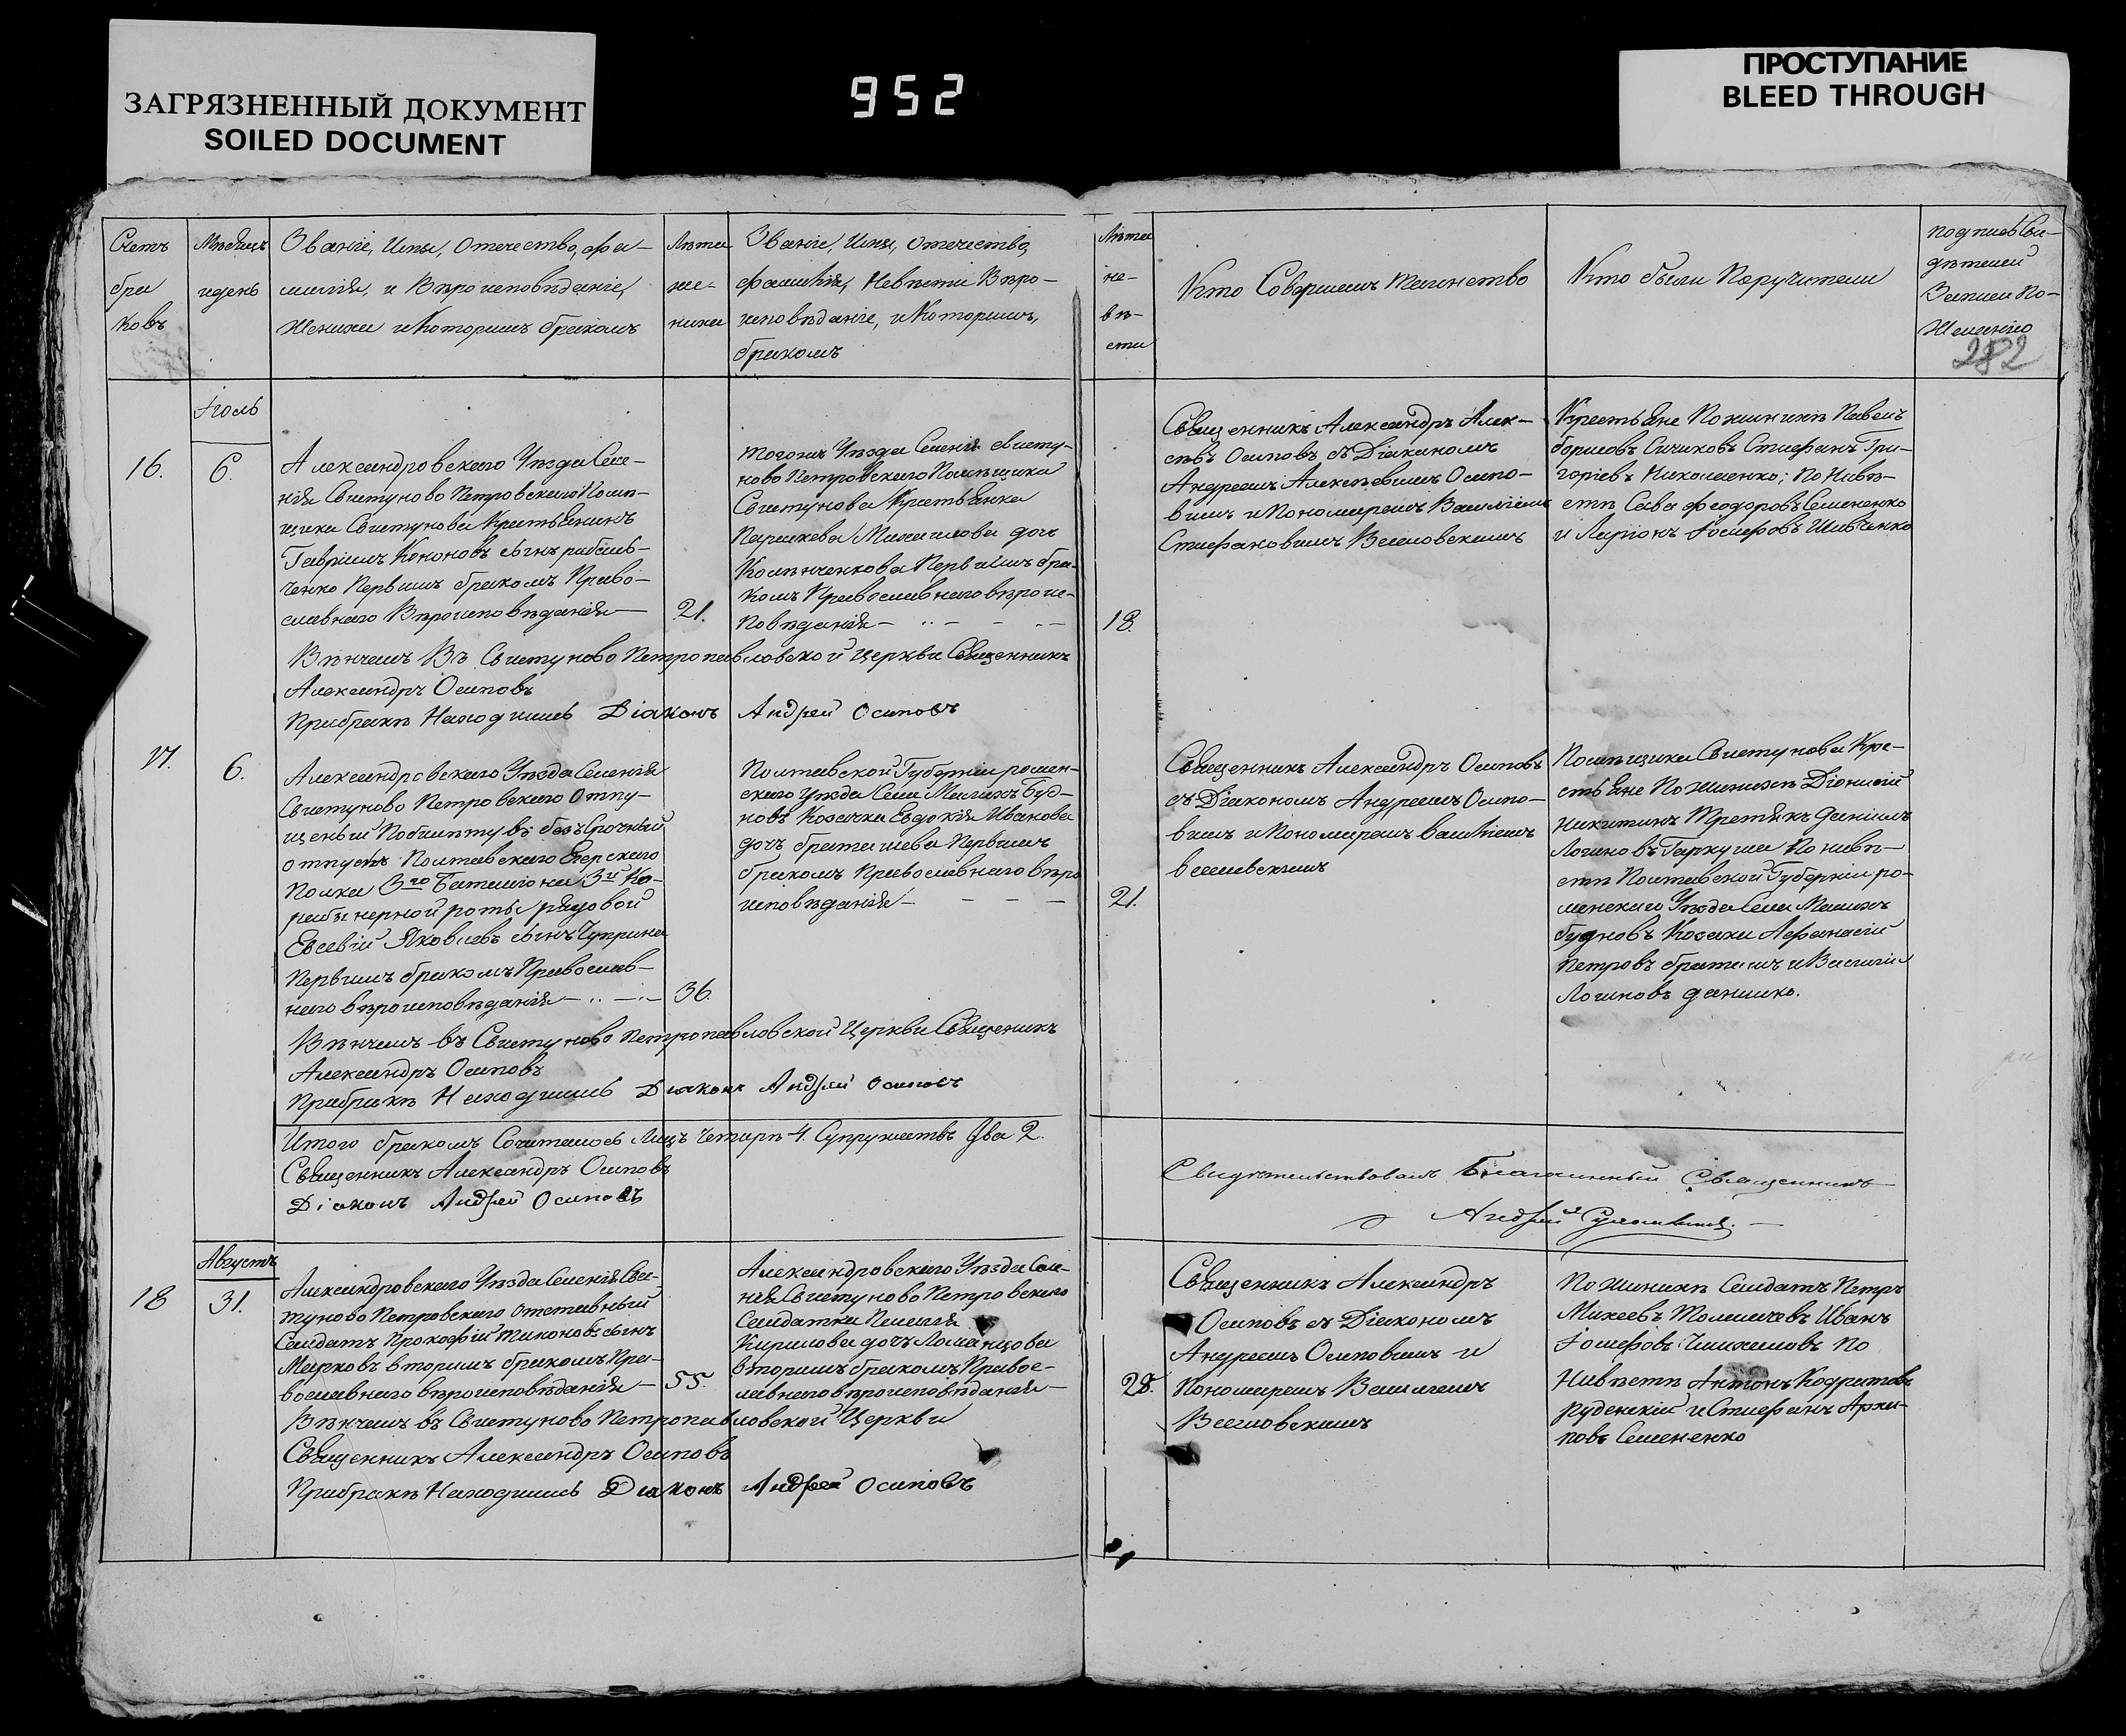 ЗАГРЯЗНЕННЫЙ ДОКУМЕНТ
SOILED DOCUMENT
952
ПРОСТУПАНИЕ
BLEED THROUGH
Счетъ
бра
ковъ
Мѣсяцъ
и день
Званіе, Имя, Отечество, фа-
милія, и Вѣроисповѣданіе,
Жениха и Которымъ бракомъ
Лѣта
же-
ниха
Званіе, Имя, Отечество,
фамилія, Невѣсты Вѣро-
исповѣданіе, и Которымъ,
бракомъ
Лѣта
не-
вѣ-
сты
Кто Совершалъ Таинство
Кто были Поручители
подписъ Сви-
дѣтелей
Записи По-
Желанію
282
Іюль
16.
6.
Александровскаго Уѣзда Селе-
нія Свистуново Петровскаго Помѣ-
щика Свистунова Крестьянинъ
Гавріилъ Кононовъ сынъ рибаль-
ченко Первымъ бракомъ Право-
славнаго Вѣроисповѣданія
21.
тогожъ Уѣзда Селенія свисту-
ново Петровскаго Помѣщика
Свистунова Крестьянка
Параскева Михаилова дочь
Колѣнченкова Первымъ бра-
комъ Православнаго вѣроис-
повѣданія
18.
Священникъ Александръ Алек-
сѣевъ Осиповъ съ Діакономъ
Андреемъ Алексѣевымъ Осипо-
вымъ и Пономаремъ Василіемъ
Стефановымъ Веселовскимъ
Крестьяне По женихѣ Павелъ
борисовъ Сичиковъ Стефанъ Гри-
горіевъ Николаенко; По Невѣ-
стѣ Сава феодоровъ Семененко
и Ларіонъ Іосифовъ Шевченко
Вѣнчалъ Въ Свистуново Петропавловской церкви Священникъ
Александръ Осиповъ
При бракѣ Находился Діаконъ Андрей Осиповъ
17.
6.
Александровскаго Уѣзда Селенія
Свистуново Петровскаго Отпу-
щеный По билету въ безсрочный
отпускъ Полтавскаго Егерскаго
Полка 3го Баталіона 3й Ка-
рабинерной роты рядовой
Евсевій Яковлевъ сынъ Чуприна
Первымъ бракомъ Православ-
наго вѣроисповѣданія
36.
Полтавской Губерніи ромен-
скаго Уѣзда Села
новъ Козачка Евдокія Иванова
дочь браташева Первымъ
бракомъ Православнаго вѣро
исповѣданія
21.
Священникъ Александръ Осиповъ
съ Діакономъ Андреемъ Осипо-
вымъ и Пономаремъ Василіемъ
веселовскимъ
Помѣщика Свистунова Кре-
стьяне По Женихѣ Діонисій
Никитинъ Третякъ данилъ
Логиновъ Гаркуша По невѣ-
стѣ Полтавской Губерніи ро-
менскаго Уѣзда Села
Козаки Афанасій
Петровъ браташъ и Василій
Логиновъ данилко.
Вѣнчалъ въ Свистуново Петропавловской Церкви Священикъ
Александръ Осиповъ
При бракѣ Находился Діаконъ Андрей Осиповъ
Итого бракомъ Сочеталось Лицъ Четыре 4. Супружествъ Два 2.
Священникъ Александръ Осиповъ
Діаконъ Андрей Осиповъ
Свидѣтельствовалъ Благочинный Священникъ
Андрей
Августъ
18
31.
Александровскаго Уѣзда Селенія Свис-
туново Петровскаго отставный
Салдатъ Прокофій тихоновъ сынъ
Марковъ вторымъ бракомъ Пра-
вославнаго вѣроисповѣданія
55.
Александровскаго Уѣзда Селе-
нія Свистуново Петровскаго
Салдатка Пелагія
Кирилова дочьЛоманцова
вторымъ бракомъ Правос-
лавнаго вѣроисповѣданія
28.
Священникъ Александръ
Осиповъ съ Діакономъ
Андреемъ Осиповымъ и
Пономаремъ Василіемъ
Веселовскимъ
По Женихѣ Салдатъ Петръ
Михеевъ Толмачевъ Иванъ
Іосифовъ По
Невѣстѣ Антонъ Кодратовъ
руденскій и Стефанъ Архи-
повъ Семененко
Вѣнчалъ въ Свистуново Петропавловской Церкви
Священникъ Александръ Осиповъ
При бракѣ Находился Діаконъ Андрей Осиповъ